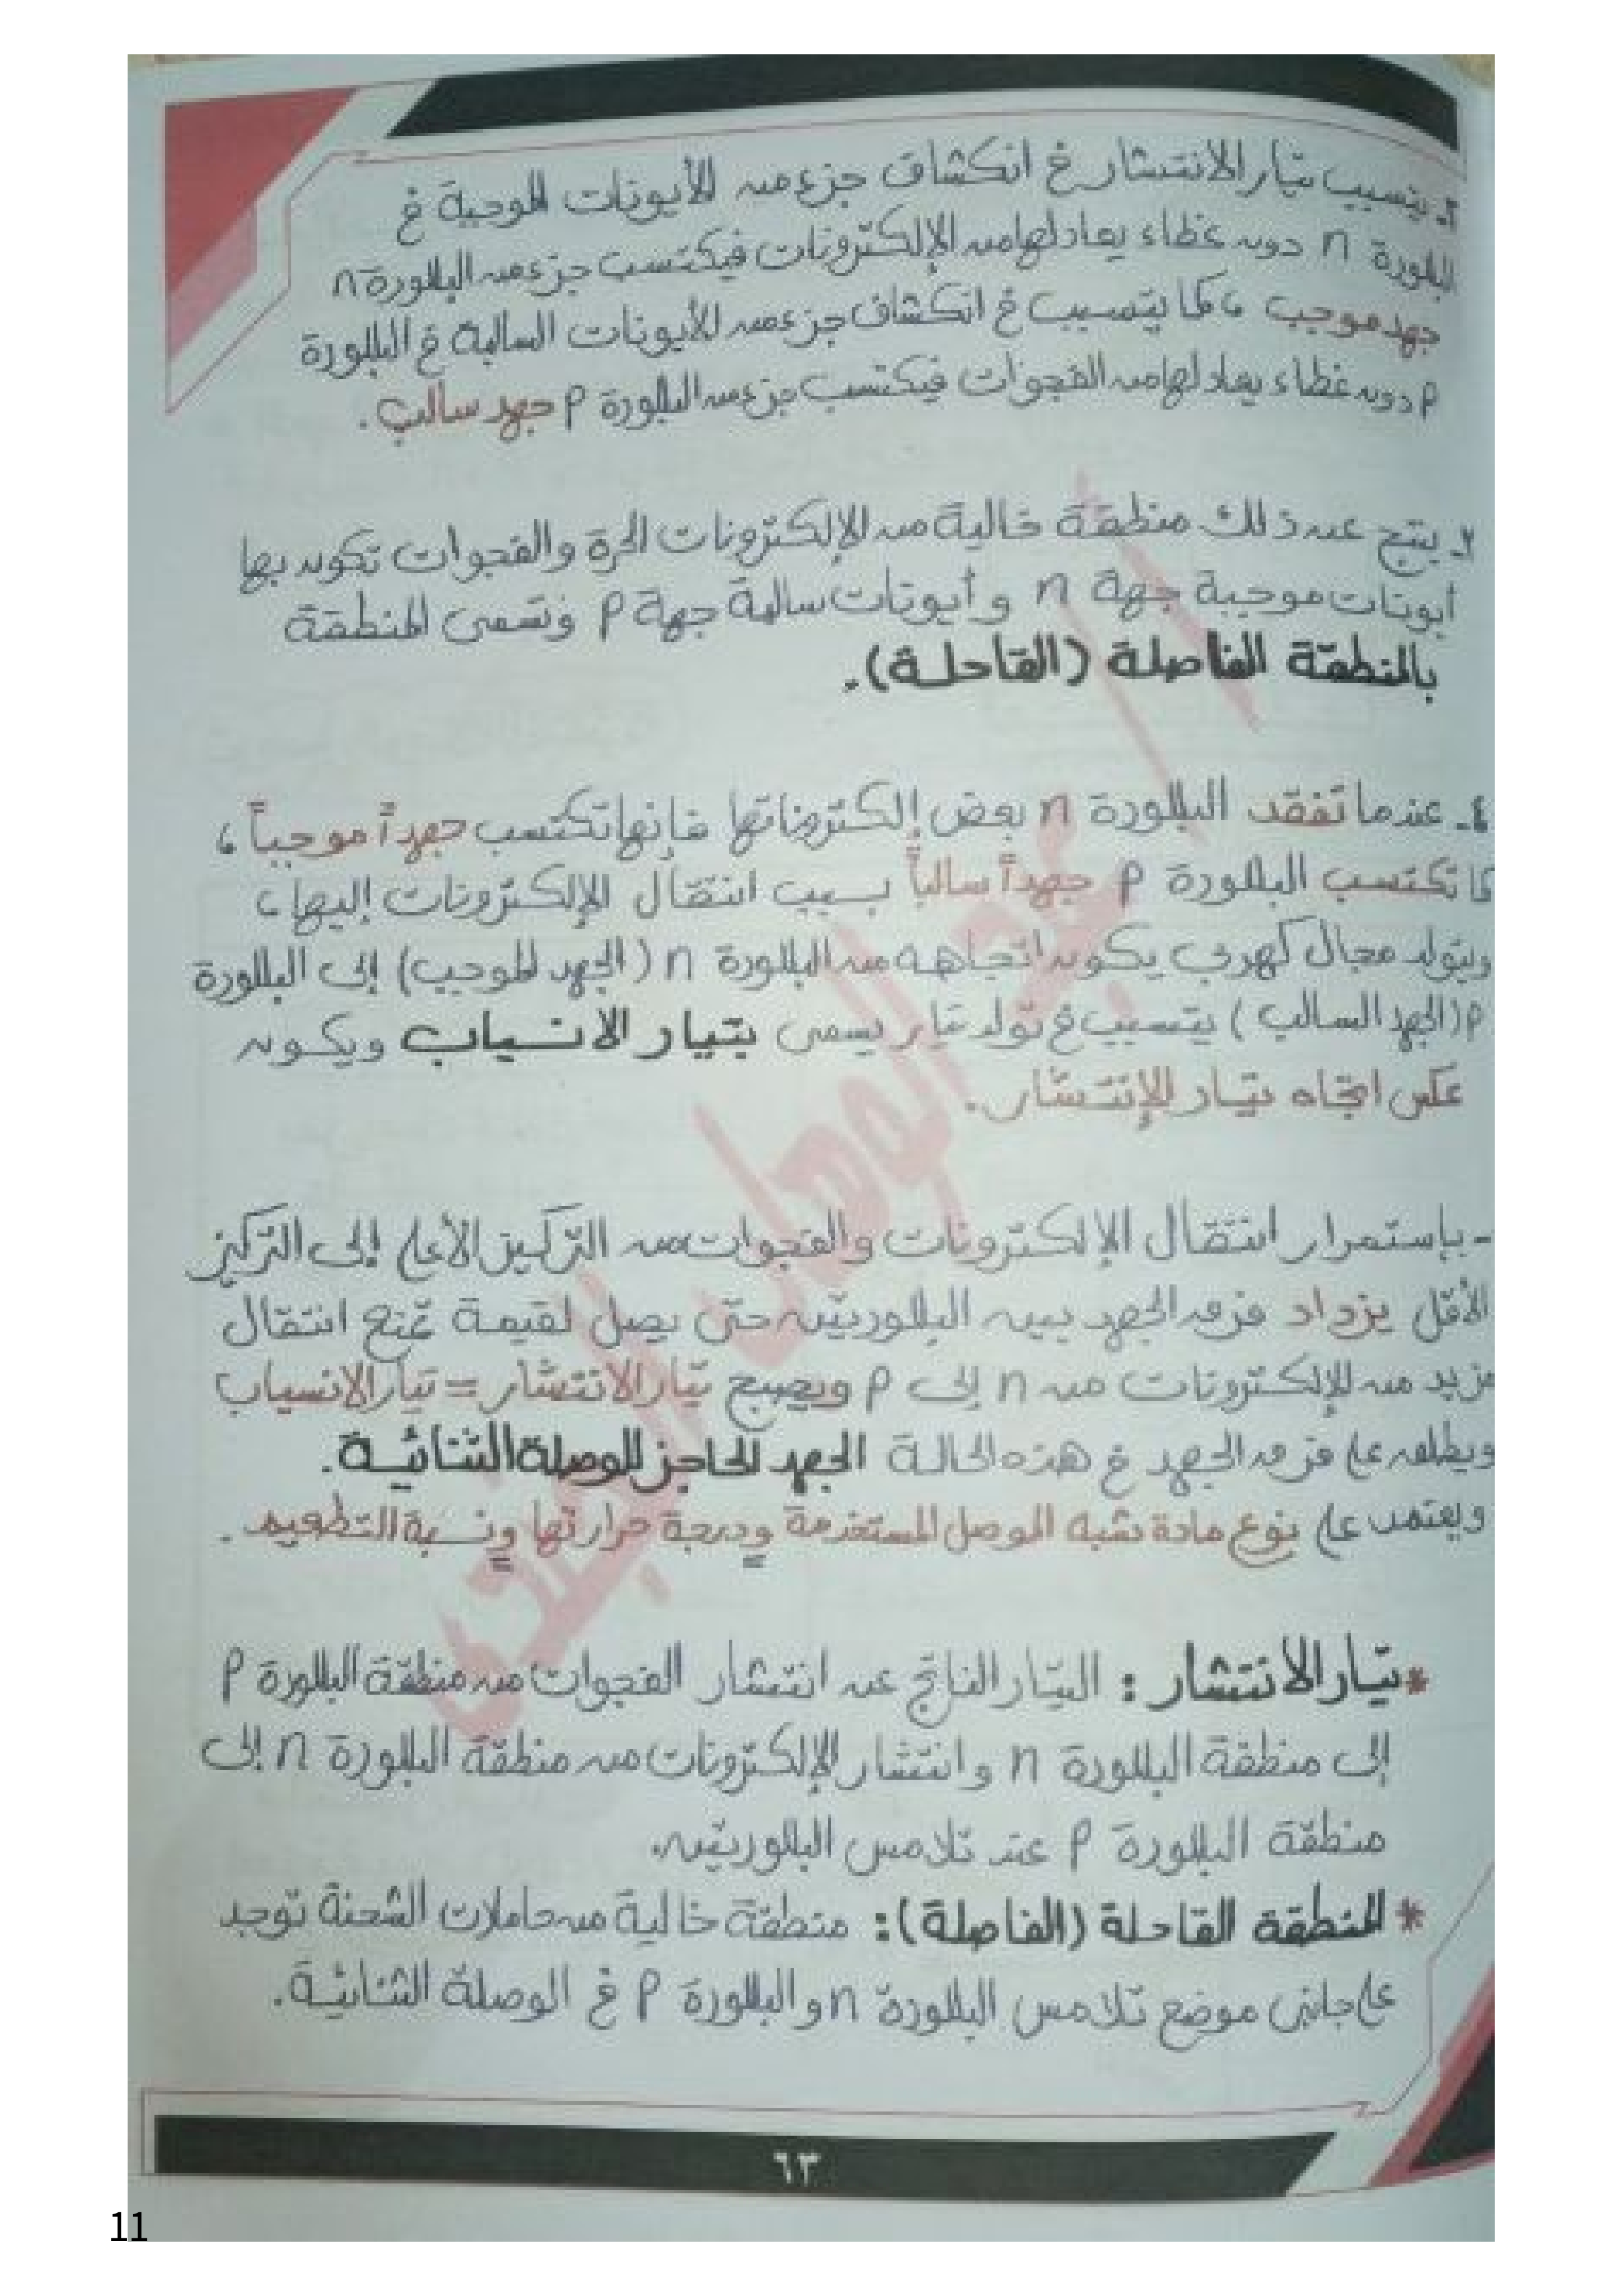 ٢- يتسبب تيار الانتشار في انكشاف جزء من الأيونات الموجبة في
البلورة n دون غطاء يعادلها من الإلكترونات فيكتسب جزء من البللورة n
جهد موجب ، كما يتسبب في انكشاف جزء من الأيونات السالبة في البللورة
p دون غطاء يعادلها من الفجوات فيكتسب جزء من البللورة p جهد سالب .
ينتج عن ذلك منطقة خالية من الإلكترونات الحرة والفجوات تكون بها
أيونات موجبة جهة n وأيونات سالبة جهة p وتسمى المنطقة
بالمنطقة الفاصلة (القاحلة).
٤- عندما تفقد البللورة n بعض إلكتروناتها فإنها تكتسب جهداً موجباً ،
كما تكتسب البللورة p جهداً سالباً بسبب انتقال الإلكترونات إليها ،
ويتولد مجال كهربي يكون اتجاهه من البللورة n (الجهد الموجب) إلى البللورة
p (الجهد السالب) يتسبب في تولد تيار يسمى بتيار الانسياب ويكون
عكس اتجاه تيار الإنتشار.
- بإستمرار انتقال الإلكترونات والفجوات من التركيز الأعلى إلى التركيز
الأقل يزداد فرق الجهد بين البللورتين حتى يصل لقيمة تمنع انتقال
مزيد من الإلكترونات من n إلى p ويصبح تيار الانتشار = تيار الانسياب
ويطلق على فرق الجهد في هذه الحالة الجهد الحاجز للوصلة الثنائية.
ويعتمد على نوع مادة شبه الموصل المستخدمة ودرجة حرارتها ونسبة التطعيم .
* تيار الانتشار : التيار الناتج عن انتشار الفجوات من منطقة البللورة p
إلى منطقة البللورة n وانتشار الإلكترونات من منطقة البلورة n إلى
منطقة البللورة p عند تلامس البللورتين.
* المنطقة القاحلة (الفاصلة): منطقة خالية من حاملات الشحنة توجد
على جانبي موضع تلامس البللورة n والبللورة p في الوصلة الثنائية.
٦٣
11